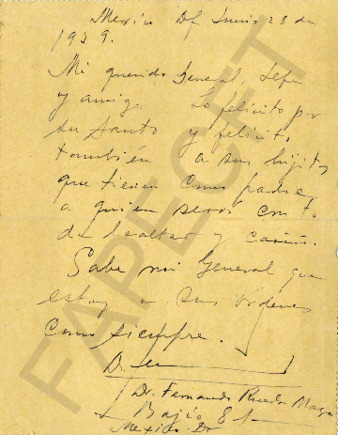 Mexico Df Junio 28 de
1939.
Mi querido General, Jefe
y amigo Lo felicito por
su Santo y felicito
también a sus hijitos
que tienen como padre
a quien servi con to
da lealtad y cariño.
Sabe mi General que
estoy a sus ordenes
como siempre.
Dr. Fernando Rueda
Bajio 81
Mexico. D
FAPECFT